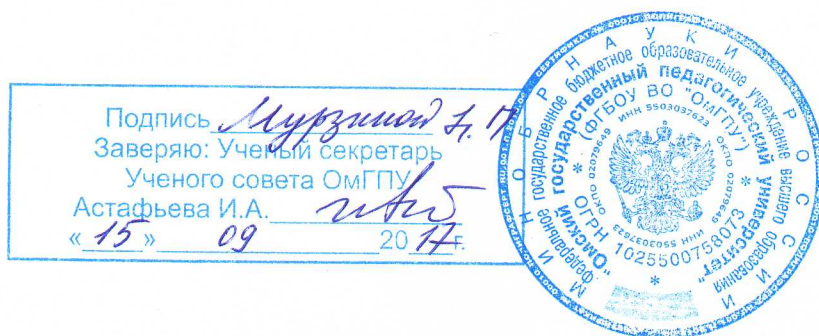 Подпись Мурзиной Н. П.
Заверяю: Ученый секретарь
Ученого совета ОмГПУ
Астафьева И.А.
« 15 » 09 2017 г.
МИНОБРНАУКИ РОССИИ
Федеральное государственное бюджетное образовательное учреждение высшего образования
"Омский государственный педагогический университет"
(ФГБОУ ВО "ОмГПУ")
* ОГРН 1025500758073 *
ИНН 5503037623